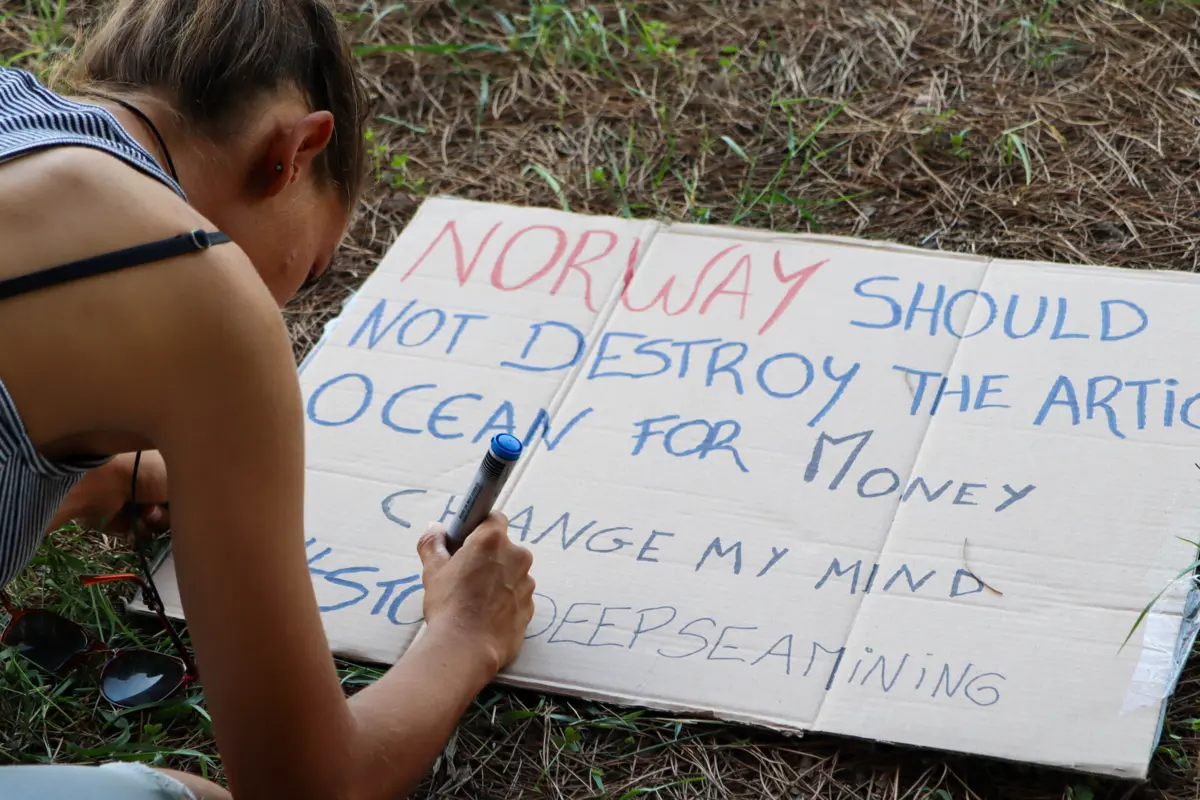 NORWAY SHOULD
NOT DESTROY THE ARTiC
OCEAN FOR MONEY
CHANGE MY MIND
#STO DEEPSEAMiNiNG